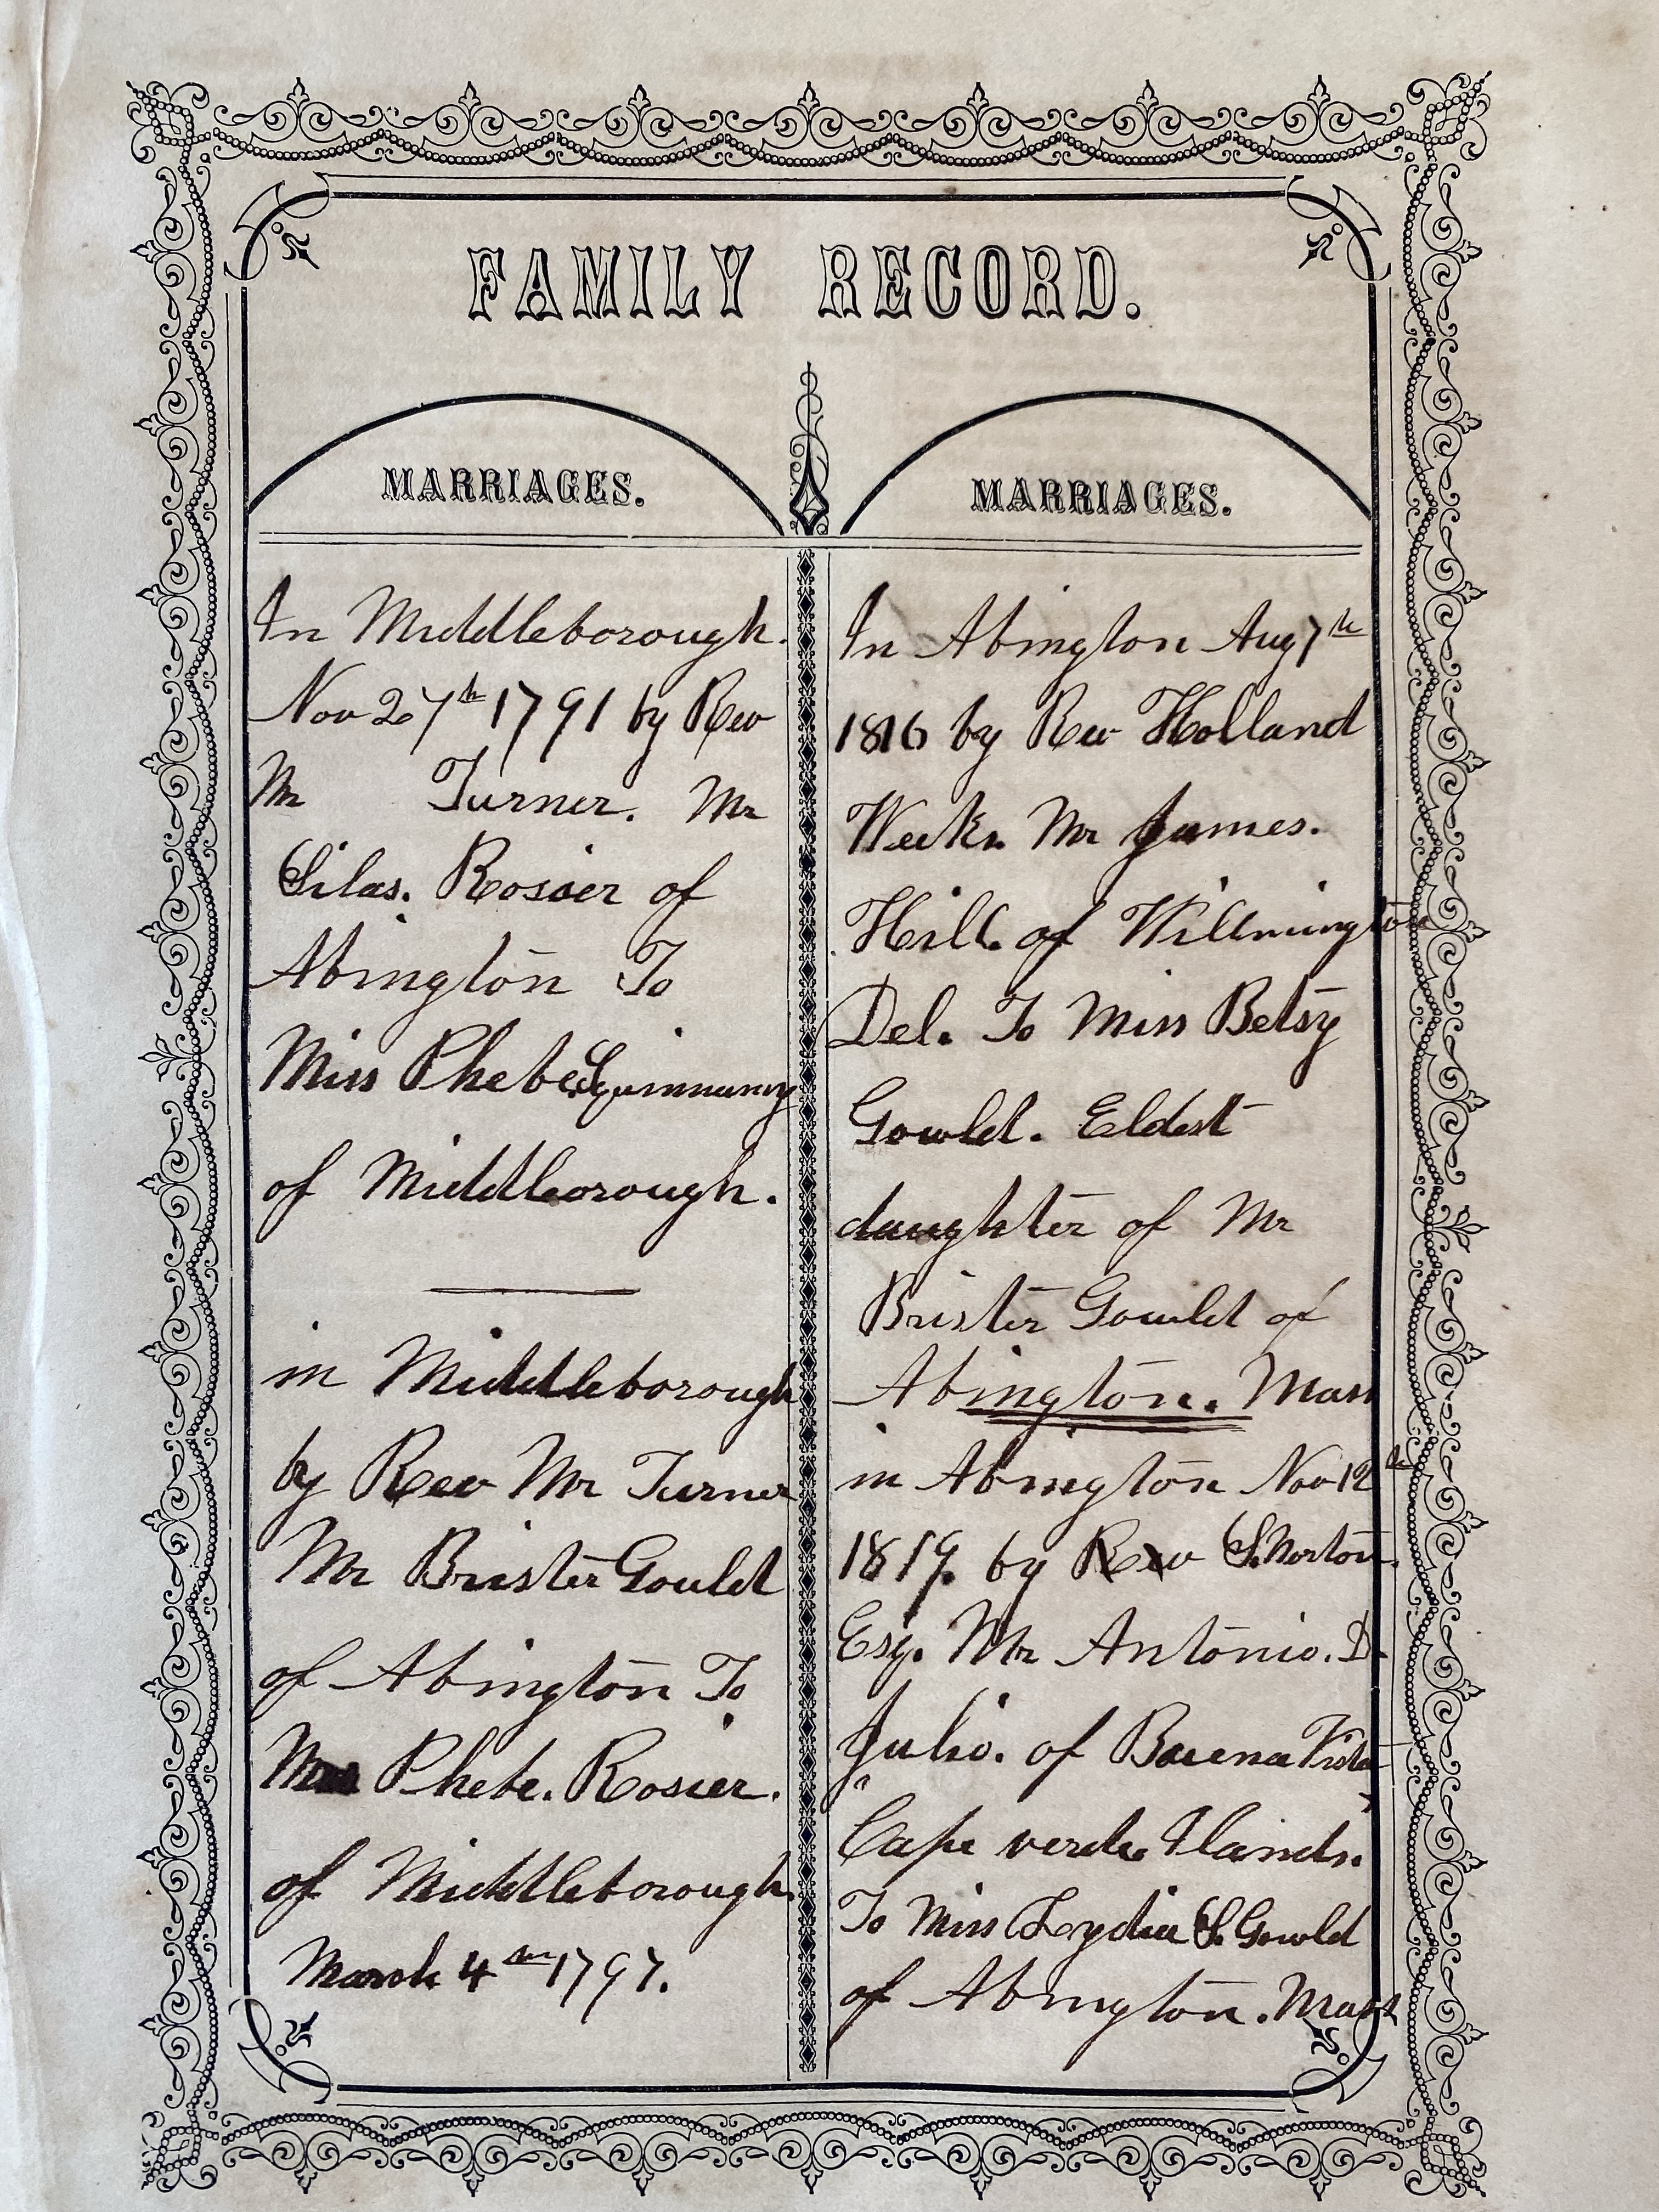 FAMILY RECORD.
MARRIAGES.
In Middleborough.
Nov 27th 1791 by Rev
Mr Turner. Mr
Silas. Rosier of
Abington To
Miss Phebe
of Middleborough.
in Middleborough
by Rev Mr Turner
Mr Brister Gould
of Abington To
Phebe. Rosier.
of Middleborough.
March 4th 1797.
MARRIAGES.
In Abington Aug 7th
1816 by Rev Holland
Weeks. Mr James.
Hill. of Willmington
Del. To Miss Betsy
Gowld. Eldest
daughter of Mr
Brister Gowld of
Abington. Mass
in Abington Nov 12th
1819. by Rev S. Norton.
Esq. Mr Antonio. D.
Julio. of Buena Vista
Cape verde Ilands.
To Miss Lydia S. Gowld
of Abington. Mass